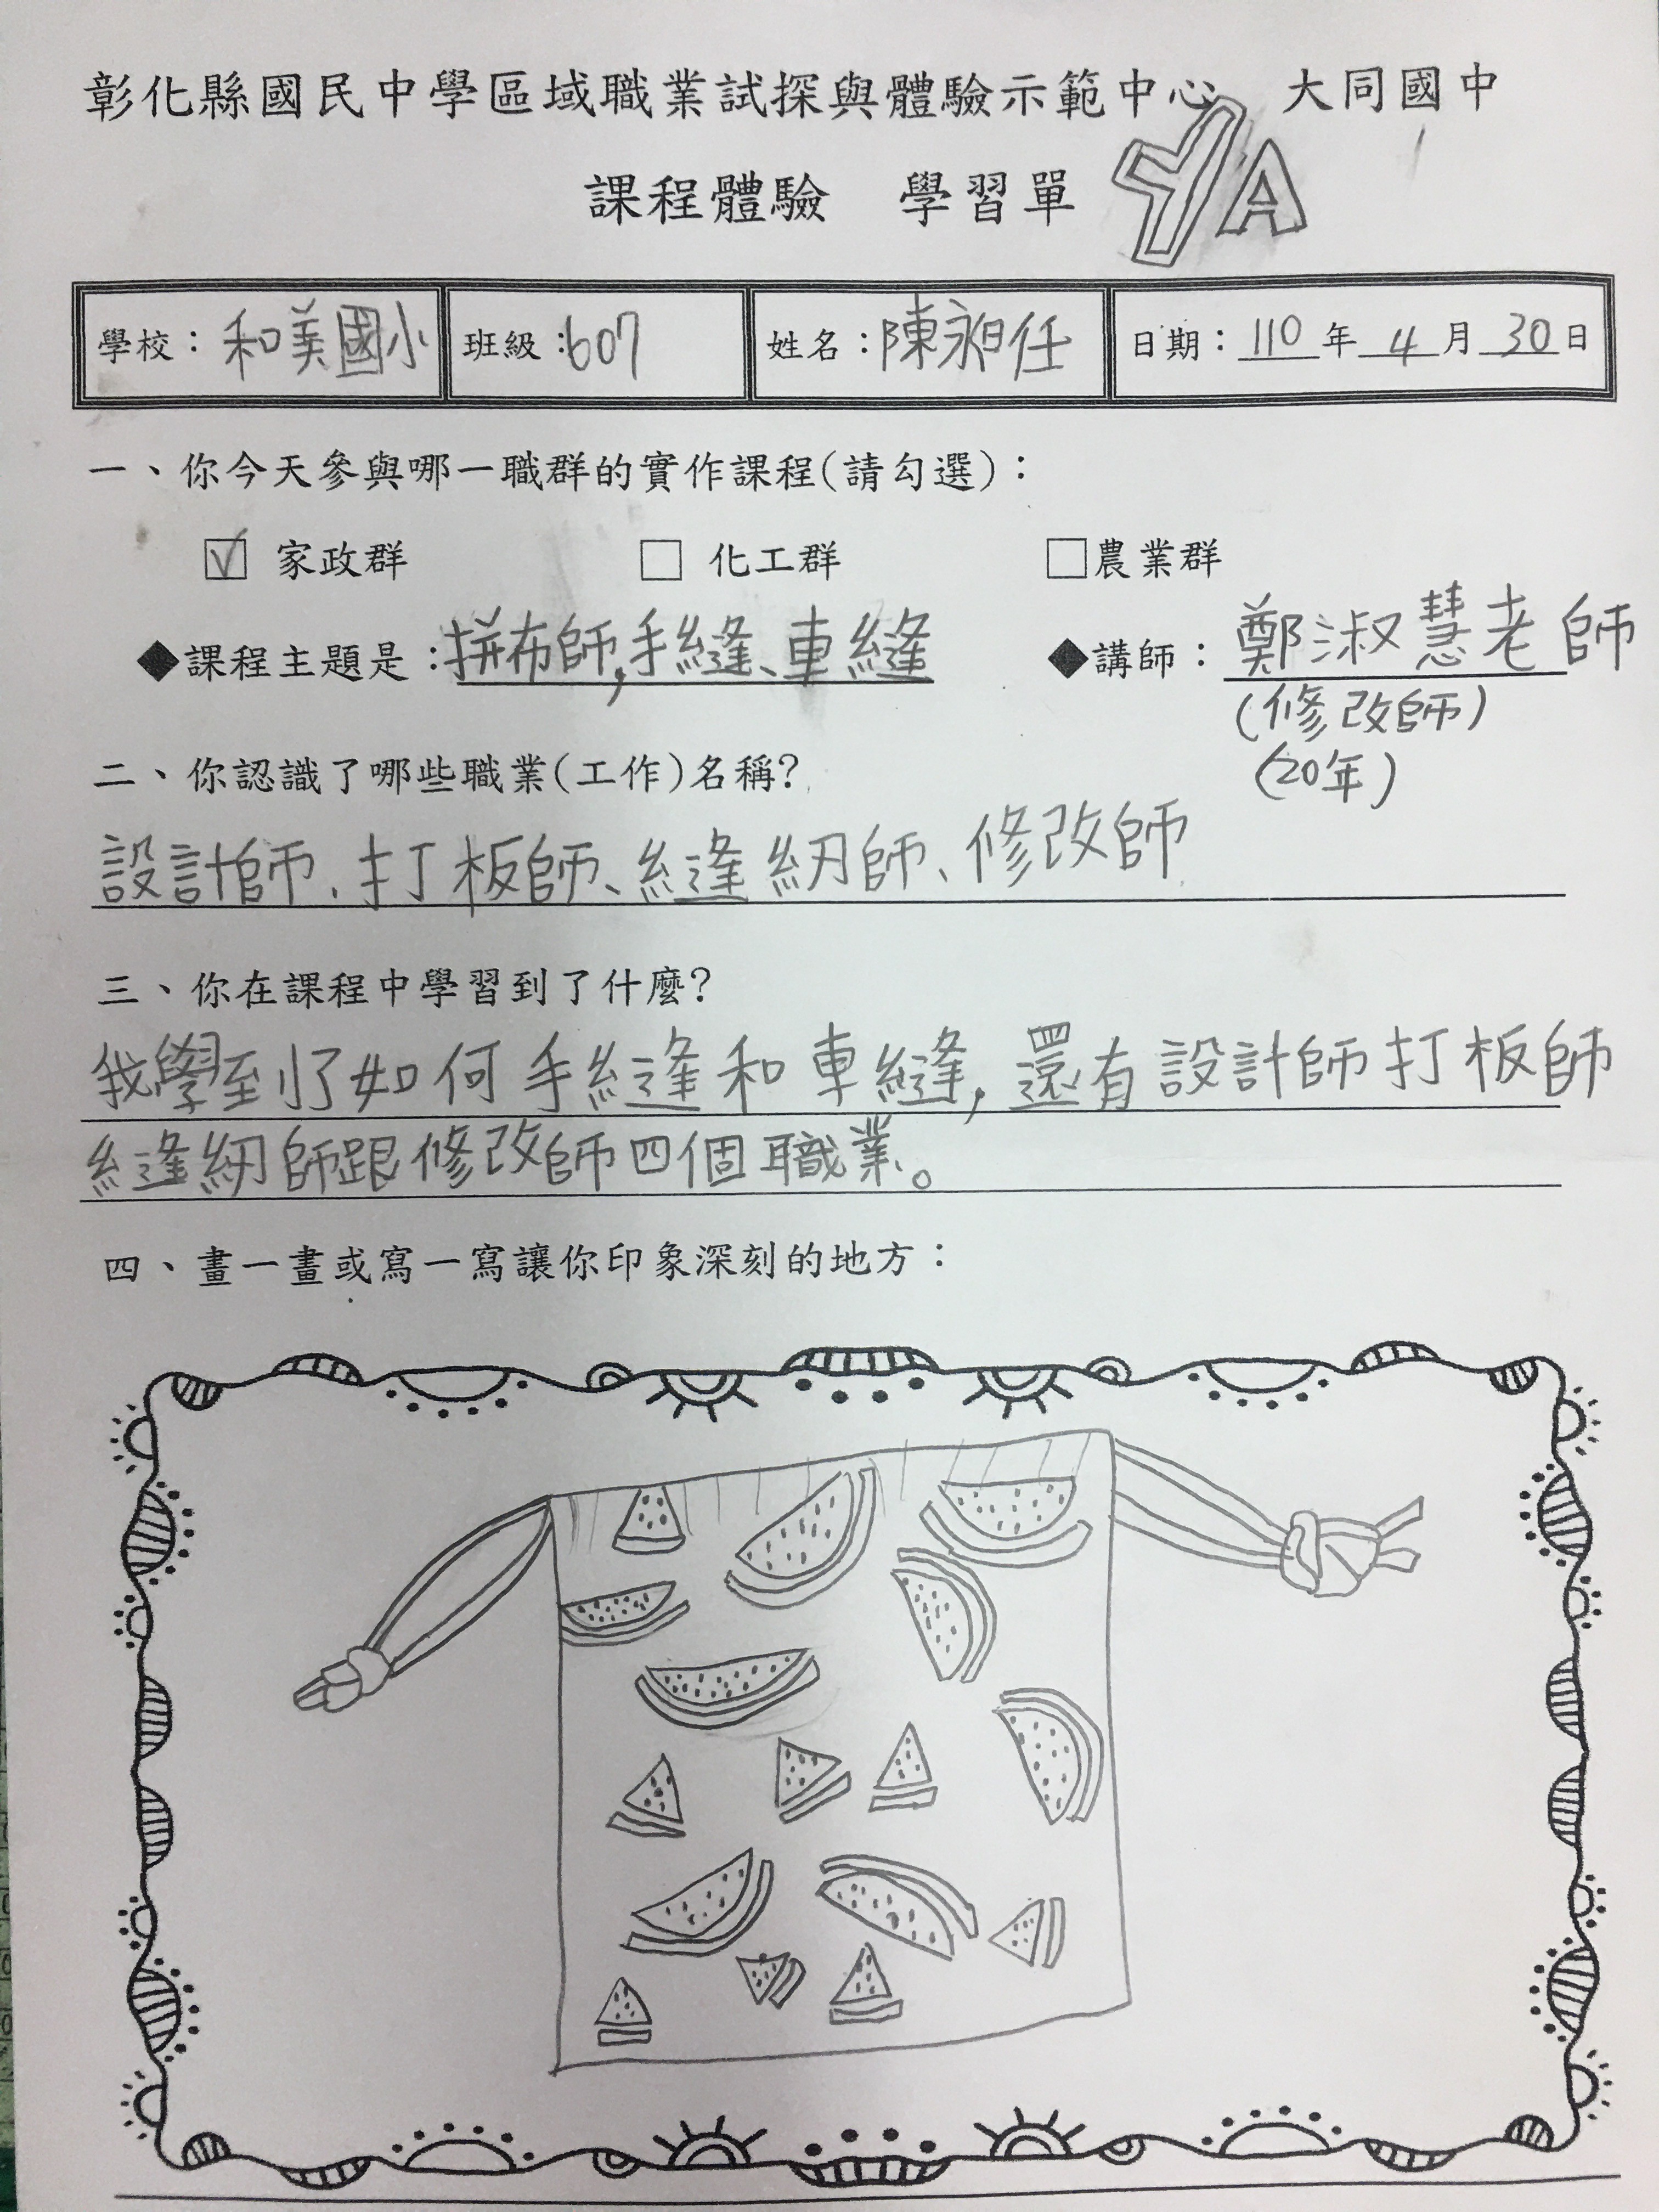 彰化縣國民中學區域職業試探與體驗示範中心 大同國中
課程體驗 學習單 YA
學校：和美國小 班級：607 姓名：陳昶任 日期：110年4月30日
一、你今天參與哪一職群的實作課程(請勾選)：
☑ 家政群 □ 化工群 □農業群
◆課程主題是：拼布師,手縫、車縫 ◆講師：鄭淑慧老師
(修改師)
(20年)
二、你認識了哪些職業(工作)名稱?
設計師、打板師、縫紉師、修改師
三、你在課程中學習到了什麼?
我學到了如何手縫和車縫,還有設計師打板師
縫紉師跟修改師四個職業。
四、畫一畫或寫一寫讓你印象深刻的地方：